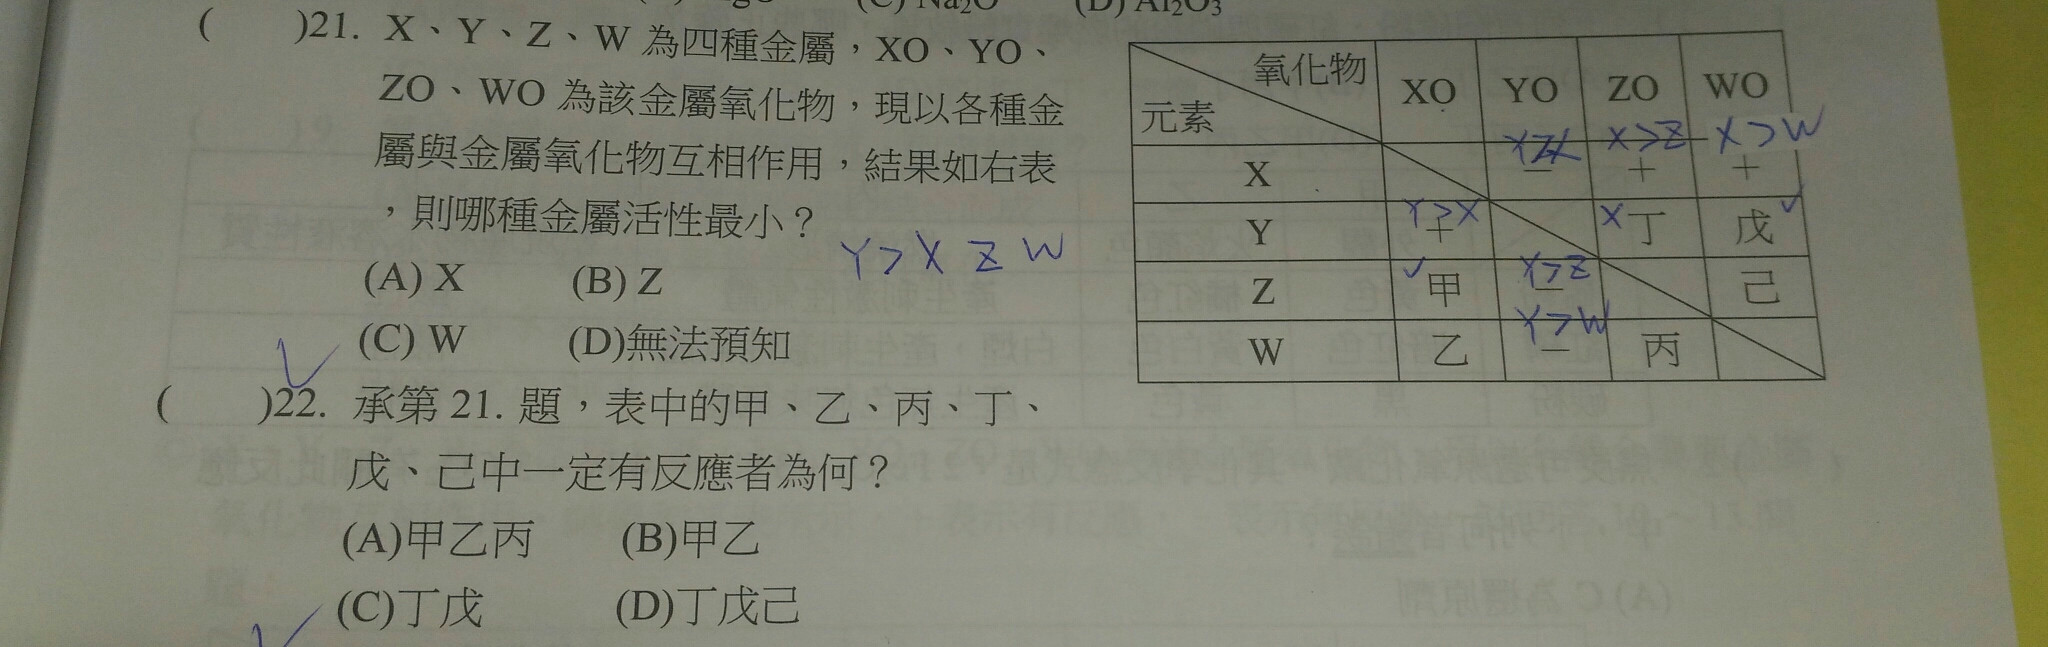 (C) Na₂O (D) Al₂O₃
( )21. X、Y、Z、W 為四種金屬,XO、YO、
ZO、WO 為該金屬氧化物,現以各種金
屬與金屬氧化物互相作用,結果如右表
,則哪種金屬活性最小?
(A) X (B) Z
(C) W (D)無法預知
Y>X Z W
氧化物 XO YO ZO WO
元素
X>Z X>W
X − + +
Y>X X ✓
Y + 丁 戊
✓ Y>Z
Z 甲 − 己
Y>W
W 乙 − 丙
( )22. 承第 21. 題,表中的甲、乙、丙、丁、
戊、己中一定有反應者為何?
(A)甲乙丙 (B)甲乙
(C)丁戊 (D)丁戊己